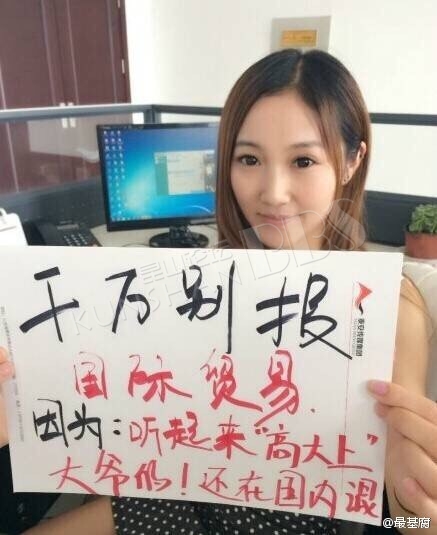 千万别报
国际贸易.
因为：听起来“高大上”
大爷的！还在国内混
泰安传媒集团
KUNSHAN BBS
@最基腐